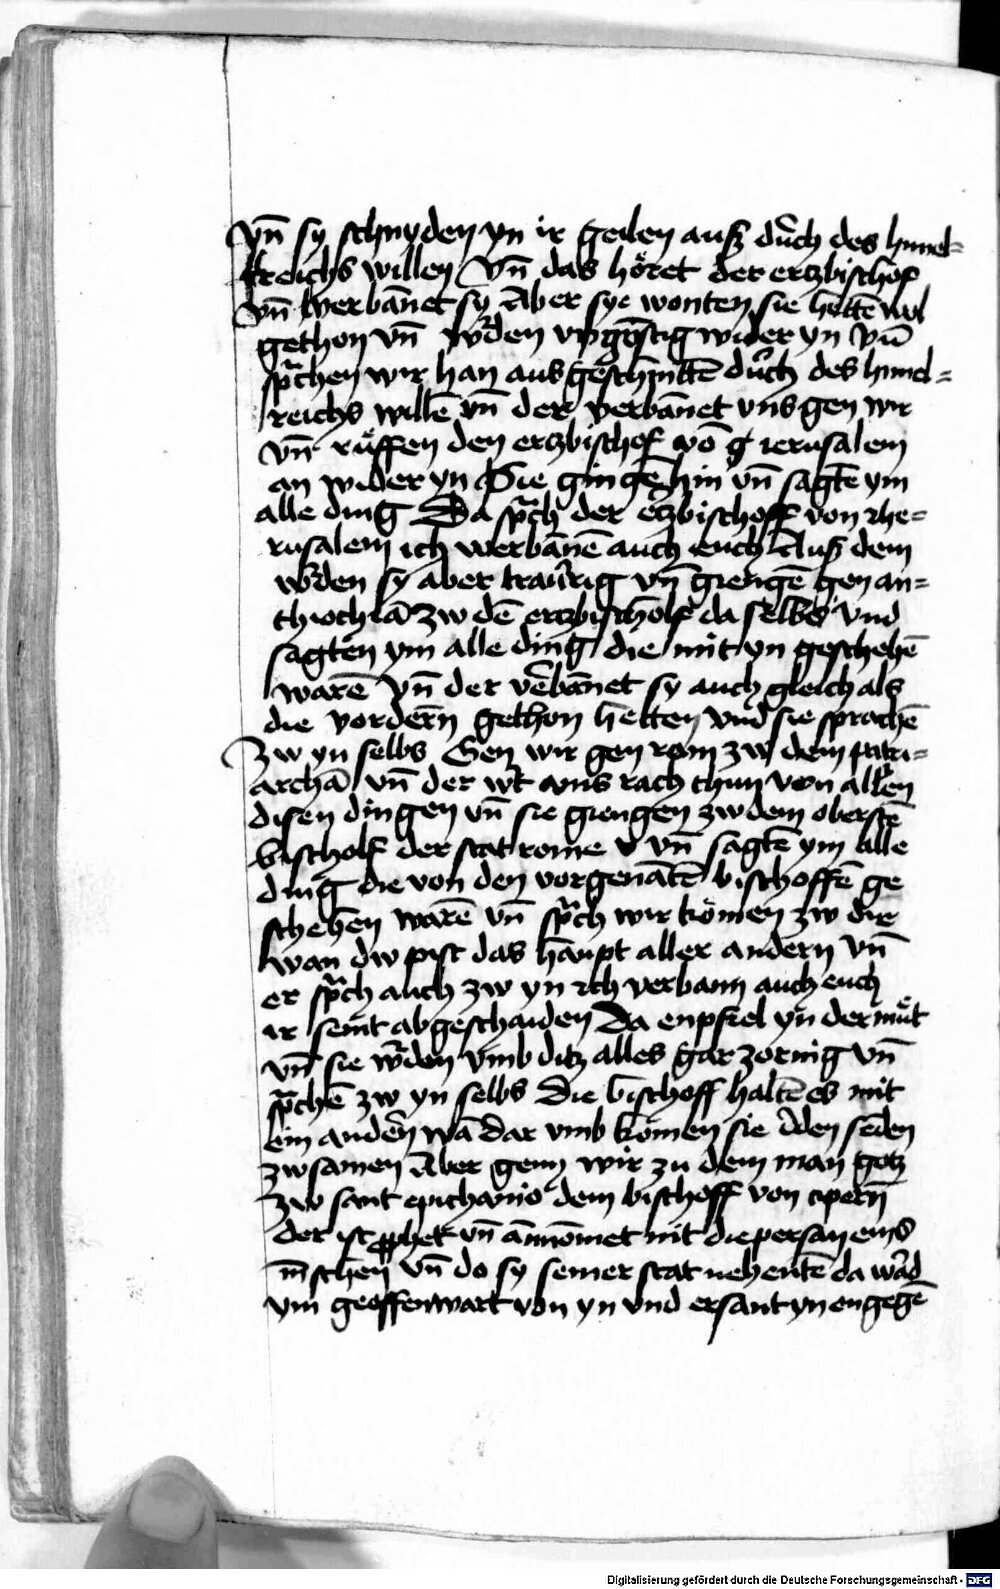 vn̄ sy schnyden yn ir geilen ausz durch des himel=
kreichs willen Vn̄ das höret der ertzbischof
vn̄ verbānet sy Aber sye wonten sie hettē wol
gethon vn̄ wurden vngöstig wider yn Vn̄
sprachen wir han aus geschnittē durch des himel=
reichs willē vn̄ der verbānet vns gen wir
vn̄ rüffen den ertzbischof võ g ierusalem
an wider yn Sie gingē hin vn̄ sagtē ym
alle ding Da sprach der ertzbischoff von Jhe=
rusalem ich verbānē auch euch Ausz dem
wurden sy aber traurig vn̄ giengē gen an=
thiochiā zw dē ertzbischolf da selbs Vnd
sagten ym alle ding die mit yn geschehē
warē Vn̄ der verbānet sy auch gleich als
die vordern gethon hetten Vnd sie sprachē
zw yn selbs Gen wir gen rom zw dem patri=
archā vn̄ der wirt vns rach thun von allen
disen dingen vn̄ sie giengen zw dem oberstē
bischolf der stat rome vn̄ sagtē ym alle
ding die von den vorgenātē bischoffē ge
schehen warē vn̄ sprach wir kömen zw dir
wan dw pist das haupt aller andern vn̄
er sprach auch zw yn Ich verbann auch euch
ir seint abgeschaiden Da enpfiel yn der müt
vn̄ sie wurden vmb ditz alles gar zornig vn̄
sprachē zw yn selbs Die bischoff haltē es mit
ein andern wā dar vmb kömen sie
zwsamen Aber genn wir zu dem man gotz
zw sant epichanio dem bischoff von cipern
der ist prophet vn̄ annömet nit die person eins
mēschen Vn̄ do sy seiner stat nehentē da ward
ym geoffenwart von yn vnd ersant yn engegē
Digitalisierung gefördert durch die Deutsche Forschungsgemeinschaft - DFG